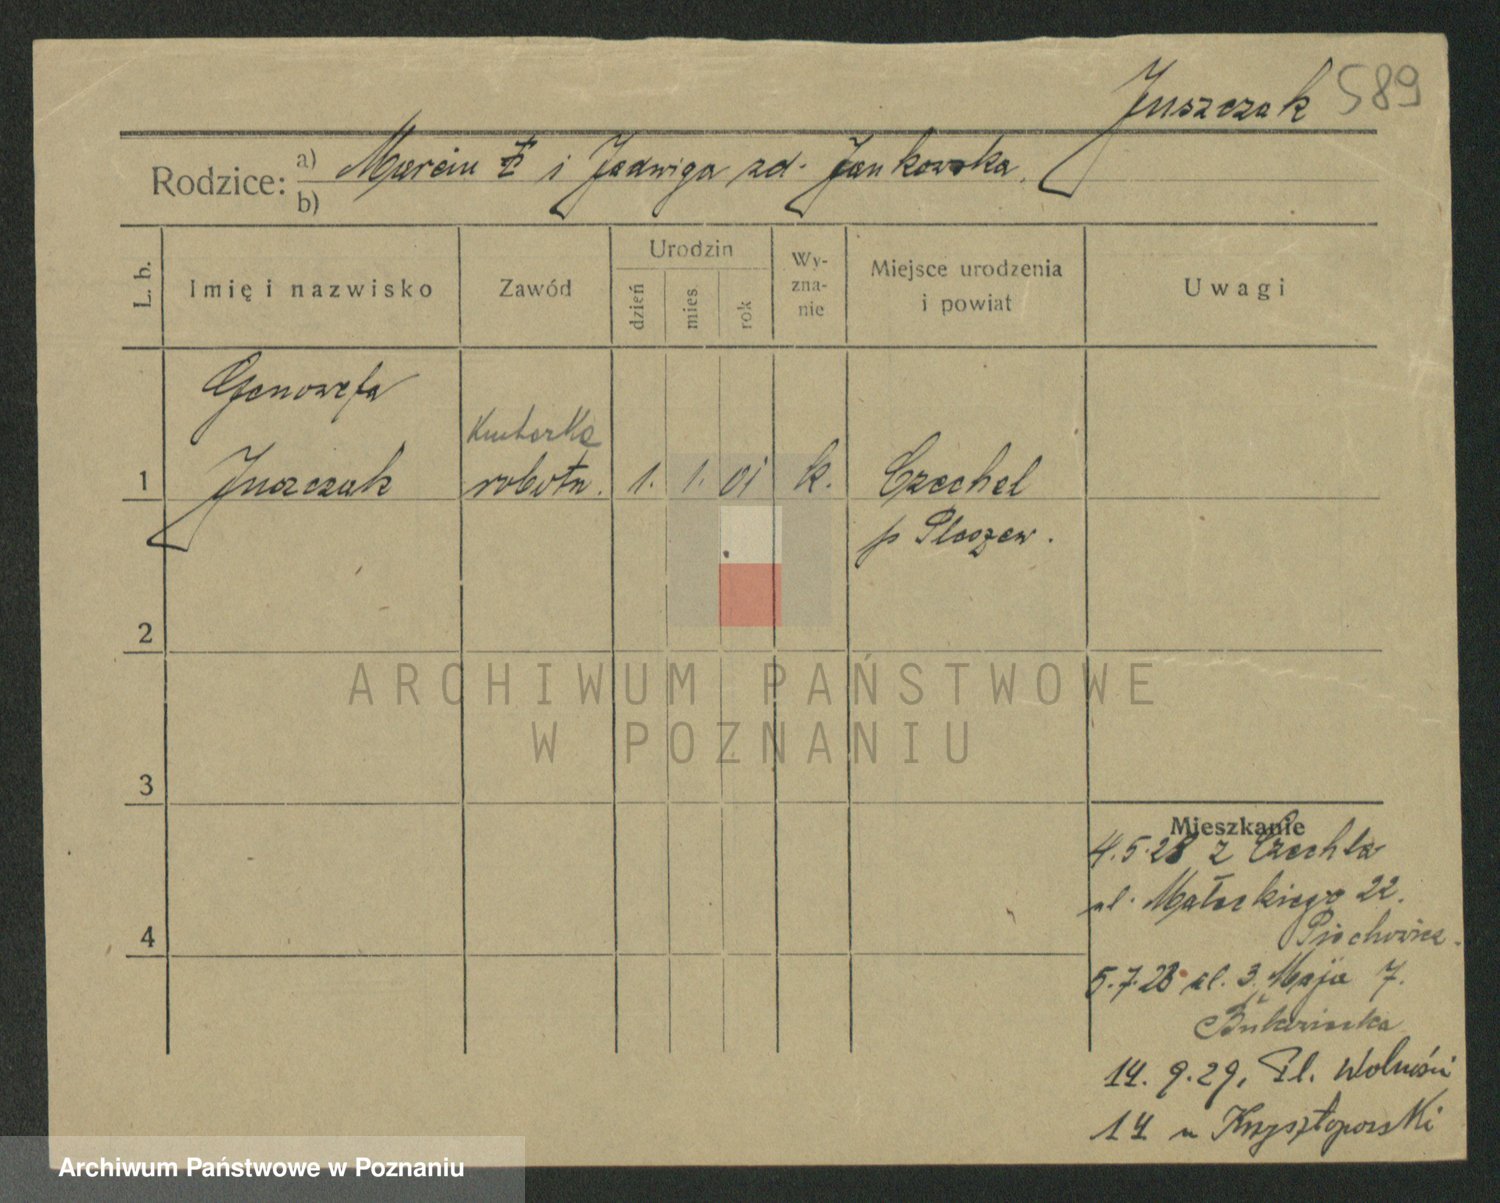 Juszczak 589
Rodzice: a) Marcin i Jadwiga zd. Jankowska.
b)
L. b.
Imię i nazwisko
Zawód
Urodzin
dzień
mies.
rok
Wy-
zna-
nie
Miejsce urodzenia
i powiat
Uwagi
Genowefa
Kucharka
1 Juszczak robotn. 1. 1. 01 k. Czechel
p Pleszew.
2
3
4
Mieszkanie
4.5.28 z Czechla
ul. Małeckiego 22.
Piechowicz.
5.7.28 ul. 3 Maja 7.
14. 9. 29, Pl. Wolności
14 u Krzysztoporski
ARCHIWUM PAŃSTWOWE
W POZNANIU
Archiwum Państwowe w Poznaniu